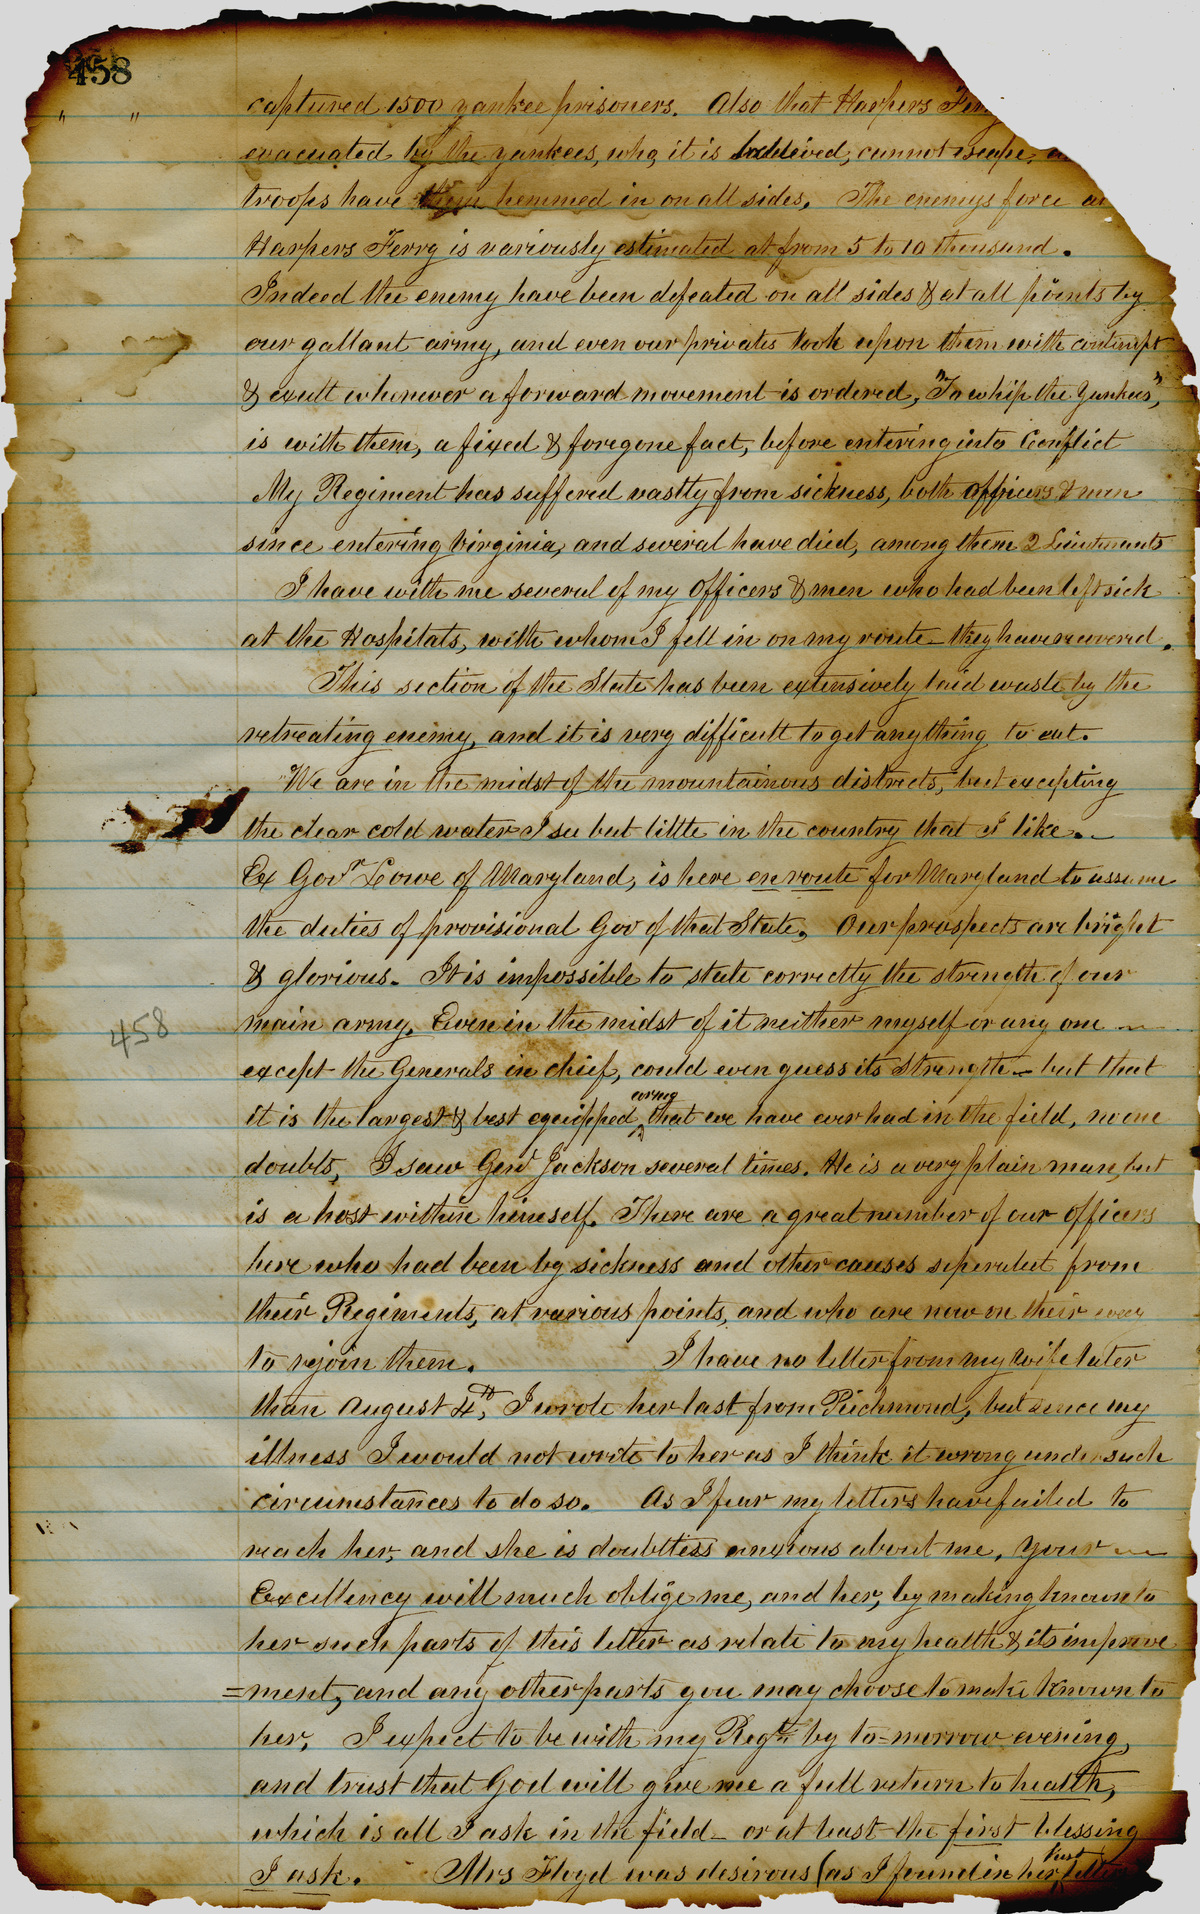 458
" " captured 1500 yankee prisoners. Also that Harpers
evacuated by the yankees, who, it is believed, cannot escape,
troops have them hemmed in on all sides. The enemys force
Harpers Ferry is variously estimated at from 5 to 10 thousand.
Indeed the enemy have been defeated on all sides & at all points by
our gallant army, and even our privates look upon them with contempt
& exult whenever a forward movement is ordered, "To whip the Yankees",
is with them, a fixed & foregone fact, before entering into Conflict
My Regiment has suffered vastly from sickness, both officers & men
since entering Virginia, and several have died, among them 2 Lieutenants
I have with me several of my officers & men who had been left sick
at the Hospitals, with whom I fell in on my route - they have recovered.
This section of the State has been extensively laid waste by the
retreating enemy, and it is very difficult to get anything to eat.
We are in the midst of the mountainous districts, but excepting
the clear cold water I see but little in the country that I like.
Ex Govr Lowe of Maryland, is here en route for Maryland to assume
the duties of provisional Gov of that State. Our prospects are bright
& glorious. It is impossible to state correctly the strength of our
458
main army. Even in the midst of it neither myself or any one
except the Generals in chief, could even guess its strength - but that
it is the largest & best equipped army that we have ever had in the field, no one
doubts, I saw Genl Jackson several times. He is a very plain man, but
is a host within himself. There are a great number of our officers
here who had been by sickness and other causes seperated from
their Regiments, at various points, and who are now on their way
to rejoin them. I have no letter from my wife later
than August 4th, I wrote her last from Richmond, but since my
illness I would not write to her as I think it wrong under such
circumstances to do so. As I fear my letters have failed to
reach her, and she is doubtless anxious about me, Your
Excellency will much oblige me, and her, by making known to
her such parts of this letter as relate to my health & its improve
=ment, and any other parts you may choose to make known to
her, I expect to be with my Regt by to-morrow evening,
and trust that God will give me a full return to health,
which is all I ask in the field - or at least the first blessing
I ask. Mrs Floyd was desirous (as I found in her last letter